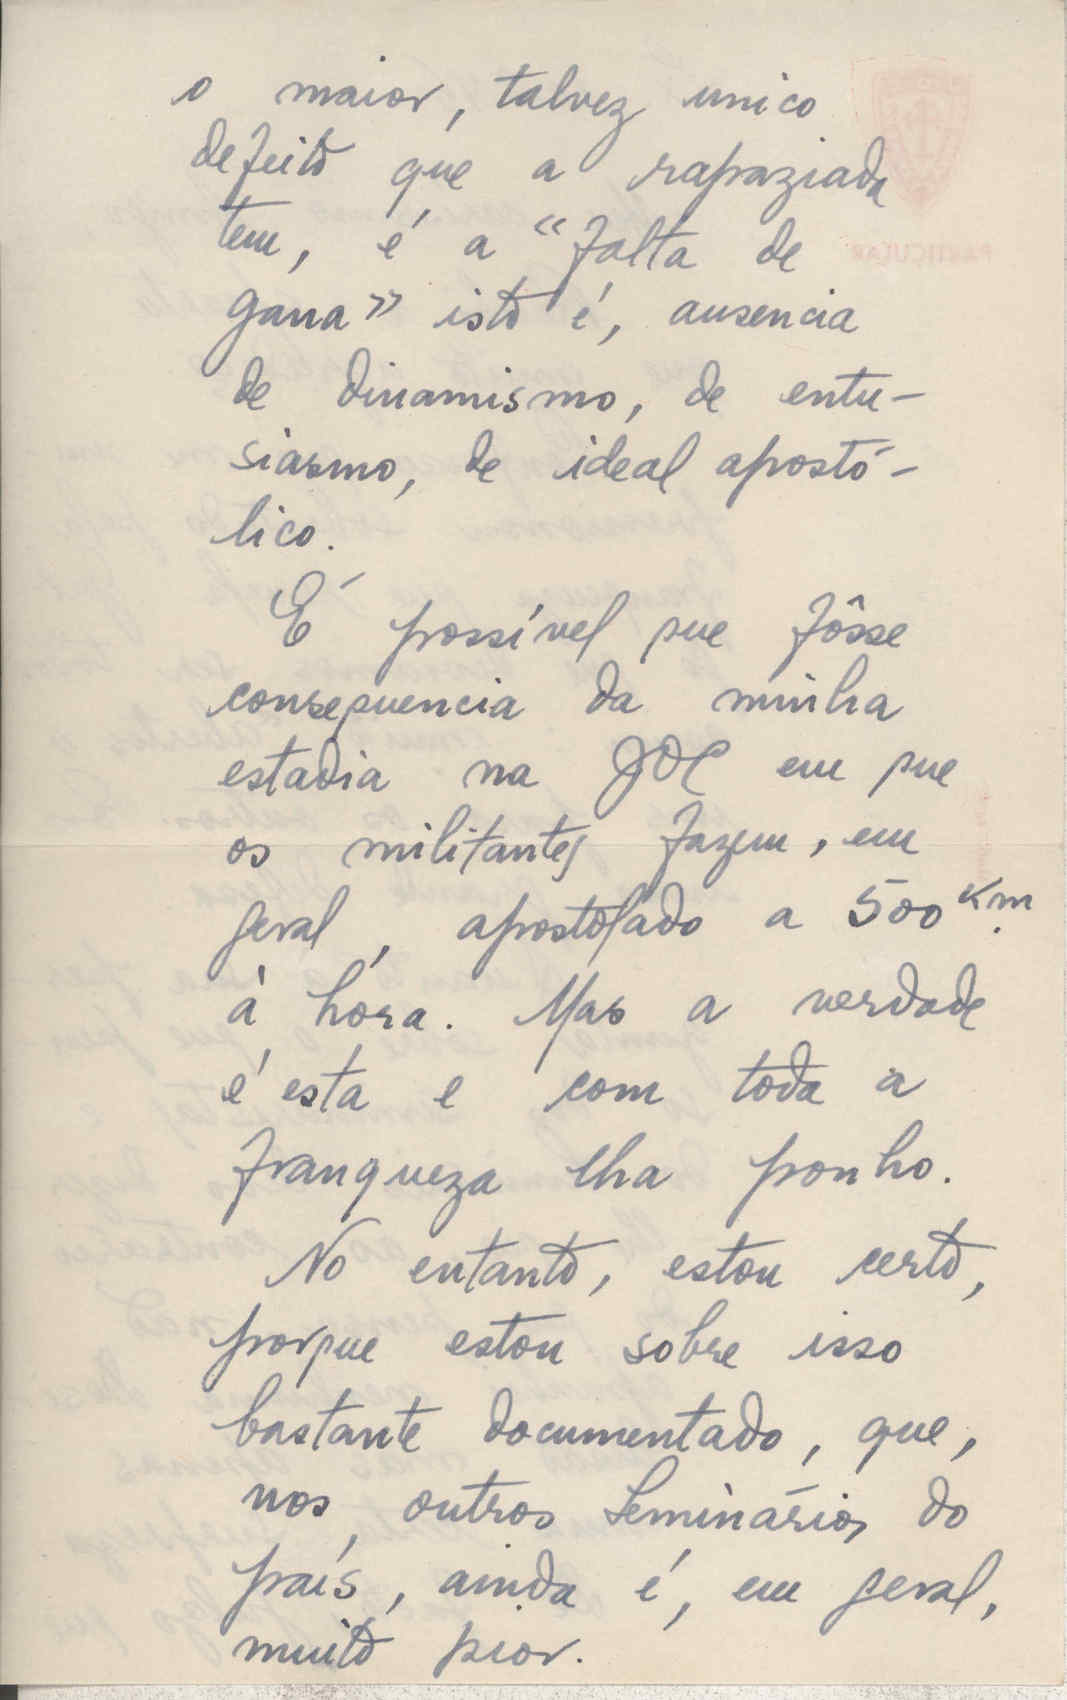 o maior, talvez unico
defeito que a rapaziada
tem, é a "falta de
gana" isto é, ausencia
de dinamismo, de entu-
siasmo, de ideal apostó-
lico.
É possível que fôsse
consequencia da minha
estadia na JOC em que
os militantes fazem, em
geral, apostolado a 500 km.
à hóra. Mas a verdade
é esta e com toda a
franqueza lha ponho.
No entanto, estou certo,
porque estou sobre isso
bastante documentado, que,
nos outros Seminários do
país, ainda é, em geral,
muito pior.